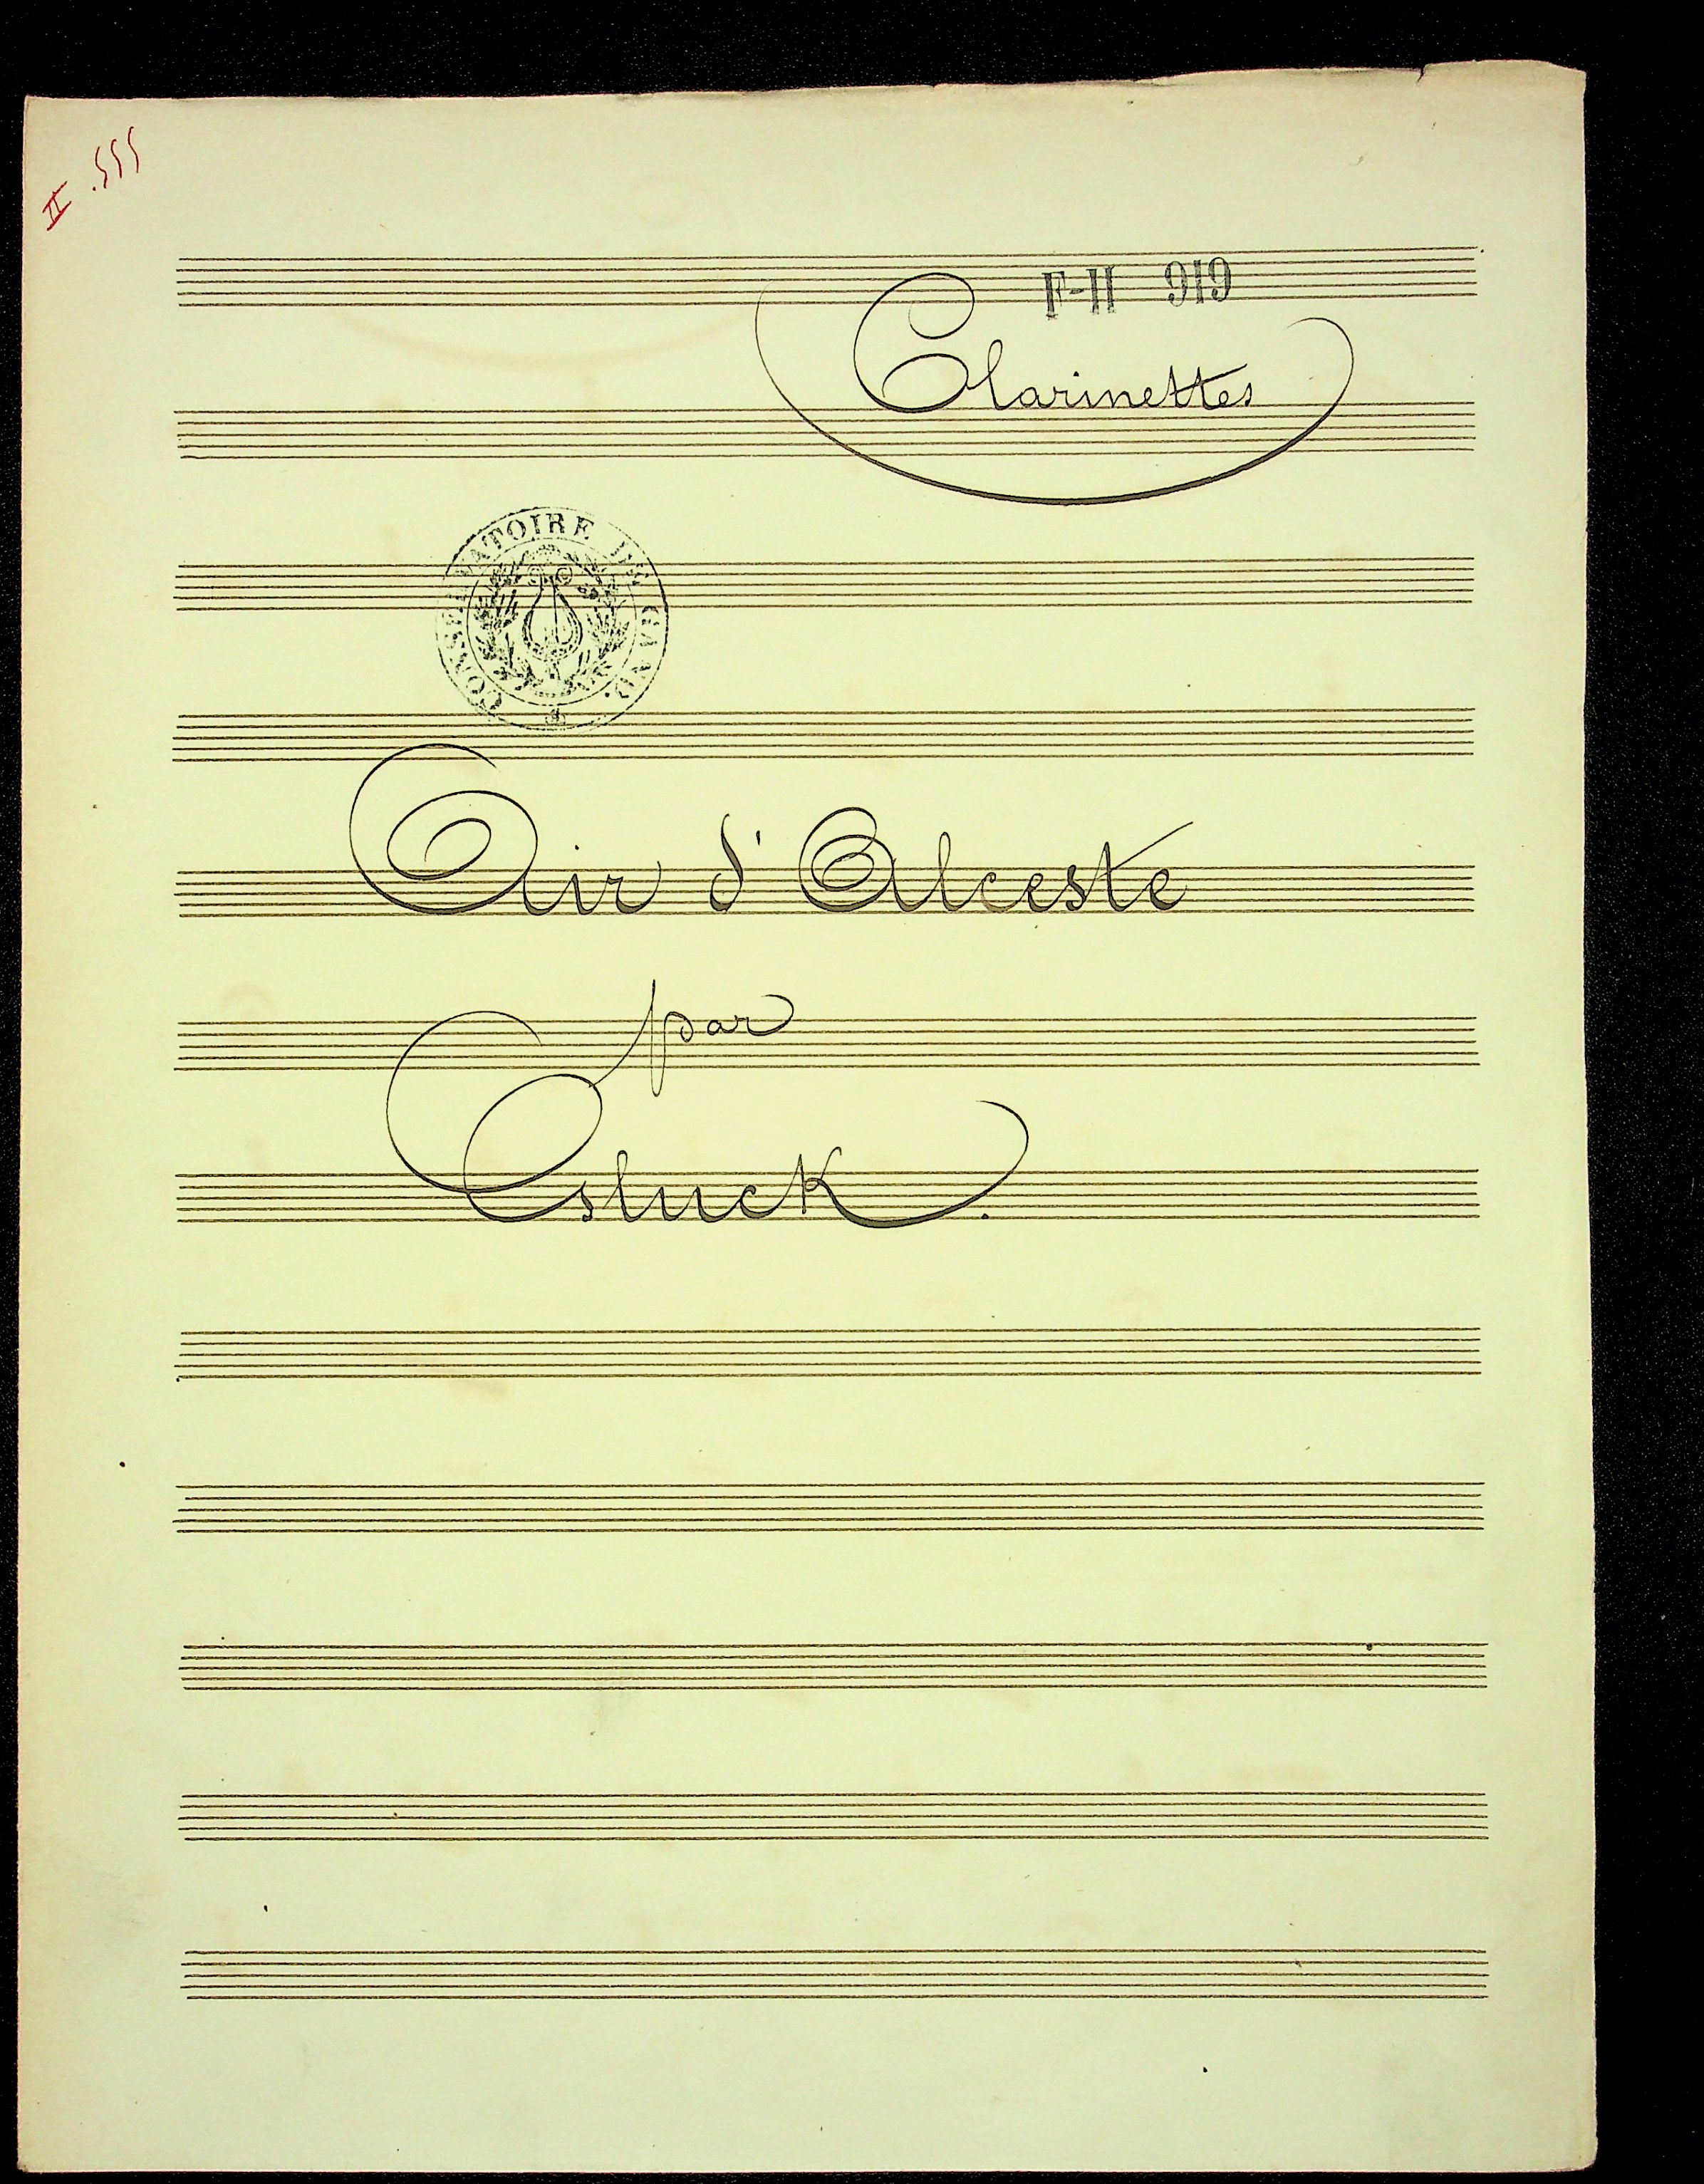 II .555
F-II 919
Clarinettes
CONSERVATOIRE DE GAND.
Air d'Alceste
par
Gluck.